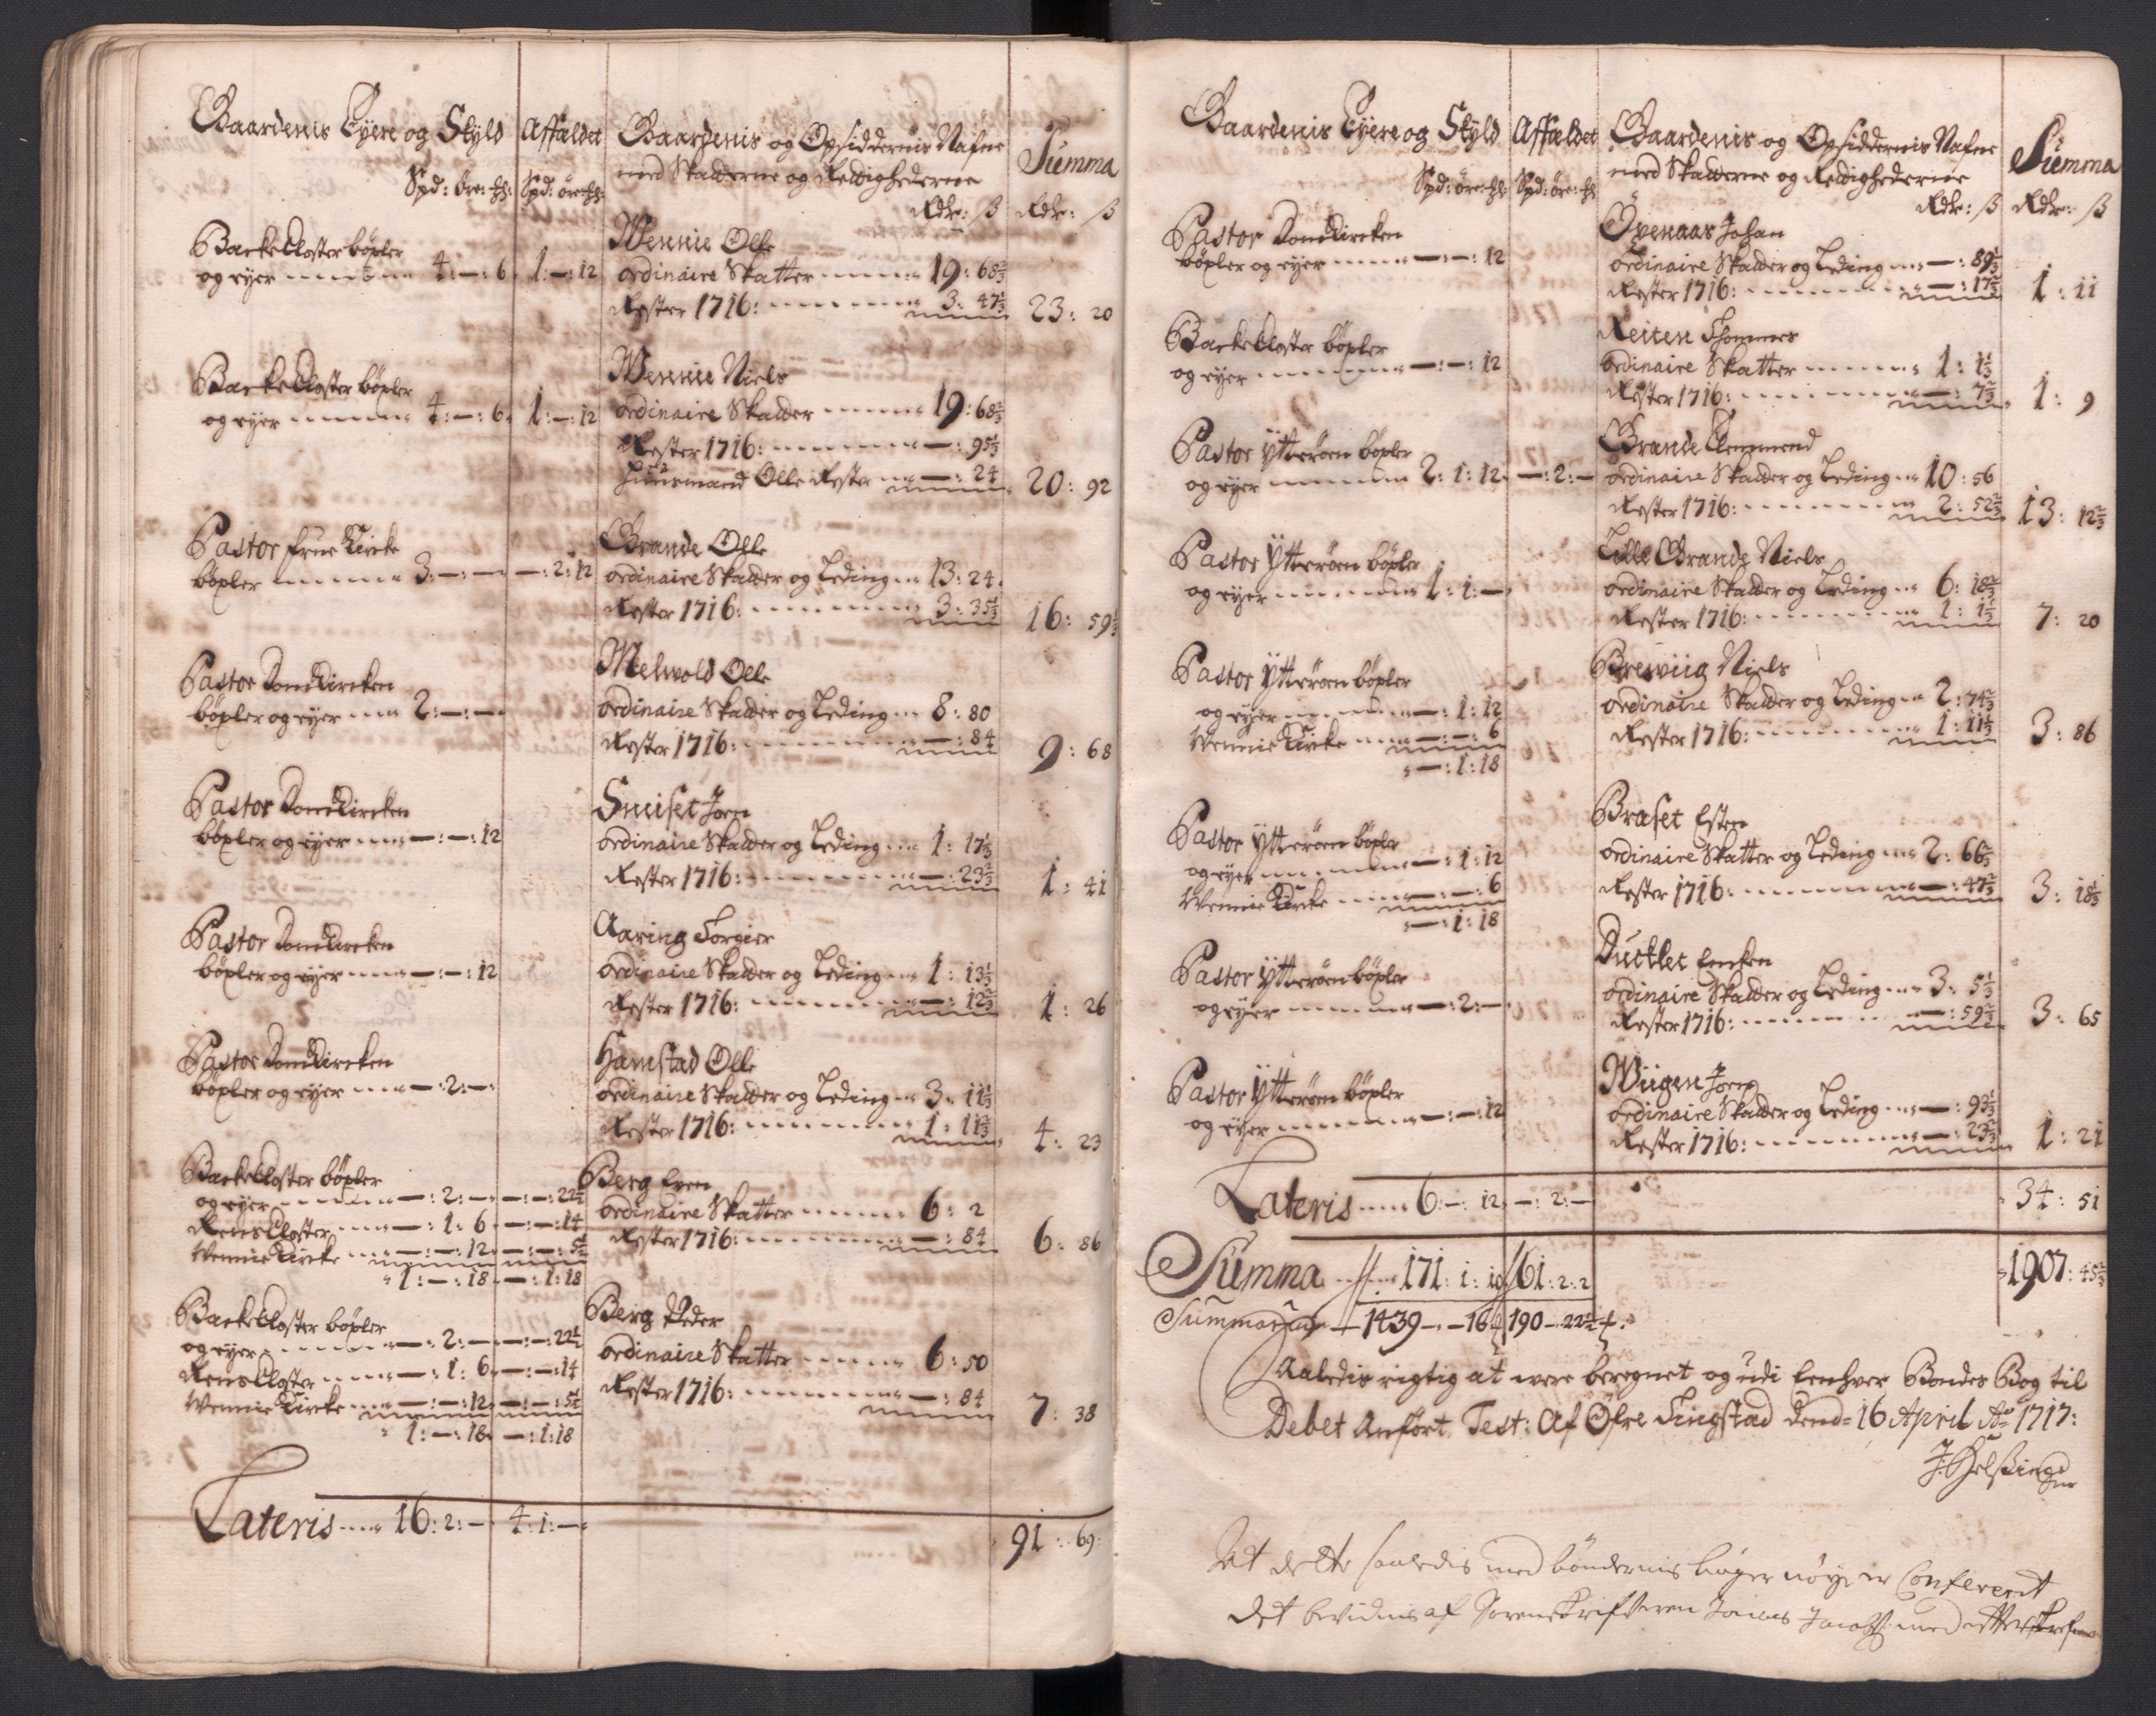 Gaardenis Eyere og Skyld
Spd: öre: Ħ:
Affældet
Spd: öre: Ħ:
Gaardenis og Opsiddernis Nafne
med Skatterne og Rettighederne
Rdr: ß
Summa
Rdr: ß
Backe Closter böxler
og eyer 4: — : 6
1: — : 12
Wennie Olle
ordinaire Skatter 19: 68⅔
Rester 1716: 3: 47⅓
23: 20
Backe Closter böxler
og eyer 4: — : 6
1: — : 12
Wennie Niels
ordinaire Skatter 19: 68⅔
Rester 1716: — : 95⅓
Huusmand Olle Rester — : 24
20: 92
Pastor frue Kircke
böxler 3: — : —
— : 2: 12
Grande Olle
ordinaire Skatter og Leding 13: 24
Rester 1716: 3: 35⅓
16: 59⅓
Pastor DomKircken
böxler og eyer 2: — : —
Melwold Olle
ordinaire Skatter og Leding 8: 80
Rester 1716: — : 84
9: 68
Pastor DomKircken
böxler og eyer — : — : 12
Smiset Joen
ordinaire Skatter og Leding 1: 17⅓
Rester 1716: — : 23⅔
1: 41
Pastor DomKircken
böxler og eyer — : — : 12
Aaring Torgier
ordinaire Skatter og Leding 1: 13⅓
Rester 1716: — : 12⅔
1: 26
Pastor DomKircken
böxler og eyer — : 2: —
Hamstad Olle
ordinaire Skatter og Leding 3: 11⅓
Rester 1716: 1: 11⅔
4: 23
Backe Closter böxler
og eyer — : 2: — — : — : 22½
Reins Closter — : 1: 6 — : — : 14
Wennie Kircke — : — : 12 — : — : 5½
1: — : 18 — : 1: 18
Berg Even
ordinaire Skatter 6: 2
Rester 1716: — : 84
6: 86
Backe Closter böxler
og eyer — : 2: — — : — : 22½
Reins Closter — : 1: 6 — : — : 14
Wennie Kircke — : — : 12 — : — : 5½
1: — : 18 — : 1: 18
Berg Peder
ordinaire Skatter 6: 50
Rester 1716: — : 84
7: 38
Lateris 16: 2: — 4: 1: —
91: 69
Gaardenis Eyere og Skyld
Spd: öre: Ħ:
Affældet
Spd: öre: Ħ
Gaardenis og Opsiddernis Nafne
med Skatterne og Rettighederne
Rdr: ß
Summa
Rdr: ß
Pastor DomKircken
böxler og eyer — : — : 12
Öxenaas Johan
ordinaire Skatter og Leding — : 89⅓
Rester 1716: — : 17⅔
1: 11
Backe Closter böxler
og eyer — : — : 12
Reiten Thommes
ordinaire Skatter 1: 1⅓
Rester 1716: — : 7⅔
1: 9
Pastor Ytterøen böxler
og eyer 2: 1: 12
— : 2: —
Grande Clemmend
ordinaire Skatter og Leding 10: 56
Rester 1716: 2: 52⅔
13: 12⅔
Pastor Ytterøen böxler
og eyer 1: 1: —
Lille Grande Niels
ordinaire Skatter og Leding 6: 18⅔
Rester 1716: 1: 1⅓
7: 20
Pastor Ytterøen böxler
og eyer — : 1: 12
Wennie Kircke — : — : 6
— : 1: 18
Brewiig Niels
ordinaire Skatter og Leding 2: 74⅔
Rester 1716: 1: 11⅓
3: 86
Pastor Ytterøen böxler
og eyer — : 1: 12
Wennie Kircke — : — : 6
— : 1: 18
Braset Esten
ordinaire Skatter og Leding 2: 66⅔
Rester 1716: — : 47⅔
3: 18⅓
Pastor Ytterøen böxler
og eyer — : 2: —
Ducklet
ordinaire Skatter og Leding 3: 5⅓
Rester 1716: — : 59⅔
3: 65
Pastor Ytterøen böxler
og eyer — : — : 12
Wiigen Joen
ordinaire Skatter og Leding — : 93⅓
Rester 1716: — : 23⅔
1: 21
Lateris 6: — : 12 — : 2: —
34: 51
Summa 171: 1: 10 61: 2: 2
1907: 45⅔
Summarum 1439 — 16½ 190 — 22½
Saaledis rigtig at were beregnet og udi Eenhver Bondes Bog til
Debet Anfört. Test: Af Öfre Tingstad dend 16 April Ao 1717:
At dette saaledis med böndernis bøger nøye er Confererit
det bevidnis af Sorenskrifveren